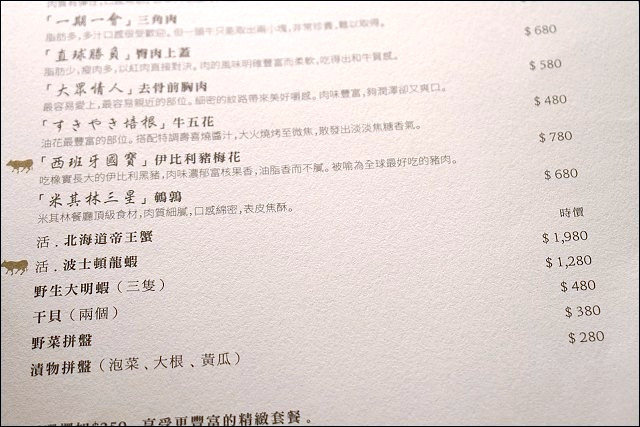 「一期一會」三角肉
脂肪多，多汁口感很受歡迎。但一頭牛只能取出兩小塊，非常珍貴，難以取得。
「直球勝負」臀肉上蓋 $ 680
脂肪少，瘦肉多，以紅肉直接對決。肉的風味明確豐富而柔軟，吃得出和牛質感。
「大眾情人」去骨前胸肉 $ 580
最容易愛上，最容易親近的部位。細密的紋路帶來美好嚼感。肉味豐富，夠潤澤卻又爽口。
「すきやき培根」牛五花 $ 480
油花最豐富的部位。搭配特調壽喜燒醬汁，大火燒烤至微焦，散發出淡淡焦糖香氣。
「西班牙國寶」伊比利豬梅花 $ 780
吃橡實長大的伊比利黑豬，肉味濃郁富核果香，油脂香而不膩。被喻為全球最好吃的豬肉。
「米其林三星」鵪鶉 $ 680
米其林餐廳頂級食材，肉質細膩，口感綿密，表皮焦酥。
活．北海道帝王蟹 時價
活．波士頓龍蝦 $ 1,980
野生大明蝦（三隻） $ 1,280
干貝（兩個） $ 480
野菜拼盤 $ 380
漬物拼盤（泡菜、大根、黃瓜） $ 280
享受更豐富的精緻套餐。